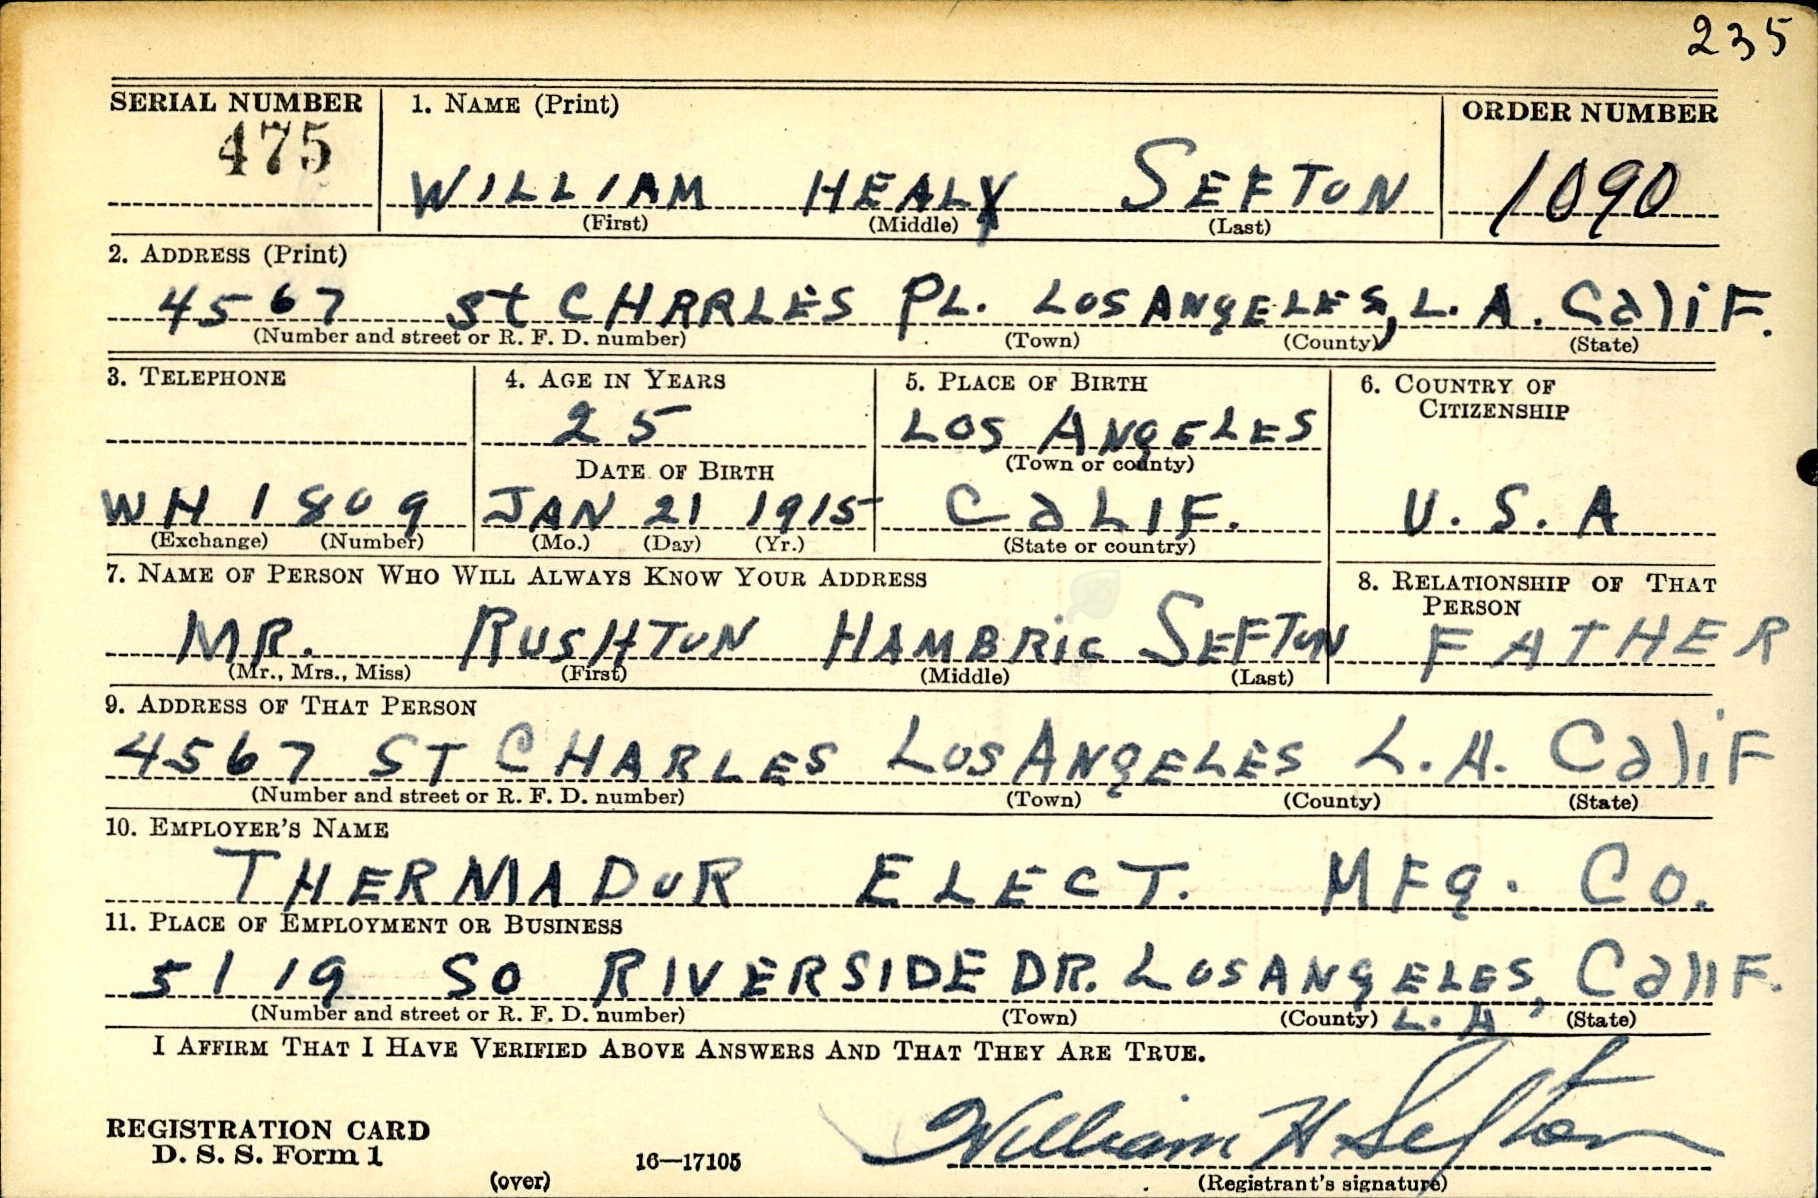 235
SERIAL NUMBER 1. NAME (Print) ORDER NUMBER
475
WILLIAM HEALY SEFTON 1090
(First) (Middle) (Last)
2. ADDRESS (Print)
4567 St CHARLES PL. LOS ANGELES, L. A. CaliF.
(Number and street or R. F. D. number) (Town) (County) (State)
3. TELEPHONE 4. AGE IN YEARS 5. PLACE OF BIRTH 6. COUNTRY OF
CITIZENSHIP
25 LOS ANGELES
DATE OF BIRTH (Town or county)
WH 1809 JAN 21 1915 CaLIF. U. S. A
(Exchange) (Number) (Mo.) (Day) (Yr.) (State or country)
7. NAME OF PERSON WHO WILL ALWAYS KNOW YOUR ADDRESS 8. RELATIONSHIP OF THAT
PERSON
MR. RUSHTON HAMBRIC SEFTON FATHER
(Mr., Mrs., Miss) (First) (Middle) (Last)
9. ADDRESS OF THAT PERSON
4567 ST CHARLES LOS ANGELES L. A. CaliF
(Number and street or R. F. D. number) (Town) (County) (State)
10. EMPLOYER'S NAME
THERMADOR ELECT. MFG. CO.
11. PLACE OF EMPLOYMENT OR BUSINESS
5119 SO RIVERSIDE DR. LOS ANGELES, CalIF.
(Number and street or R. F. D. number) (Town) (County) L. A (State)
I AFFIRM THAT I HAVE VERIFIED ABOVE ANSWERS AND THAT THEY ARE TRUE.
William H Sefton
REGISTRATION CARD
D. S. S. Form 1 16—17105
(over) (Registrant's signature)